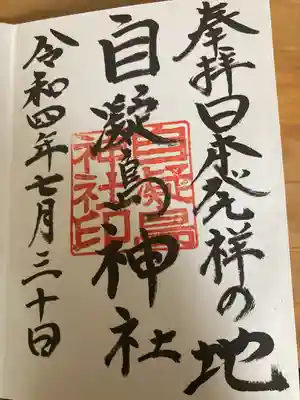 奉拝日本発祥の地
自凝島神社
自凝島
神社印
令和四年七月三十日